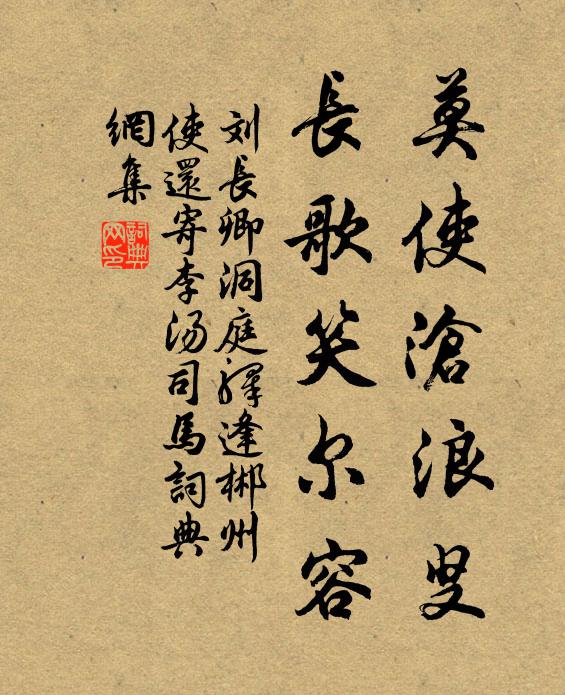 莫使滄浪叟
長歌笑尔容
刘長卿洞庭驿逢郴州
使還寄李汤司馬詞典
網集
詞典
网印